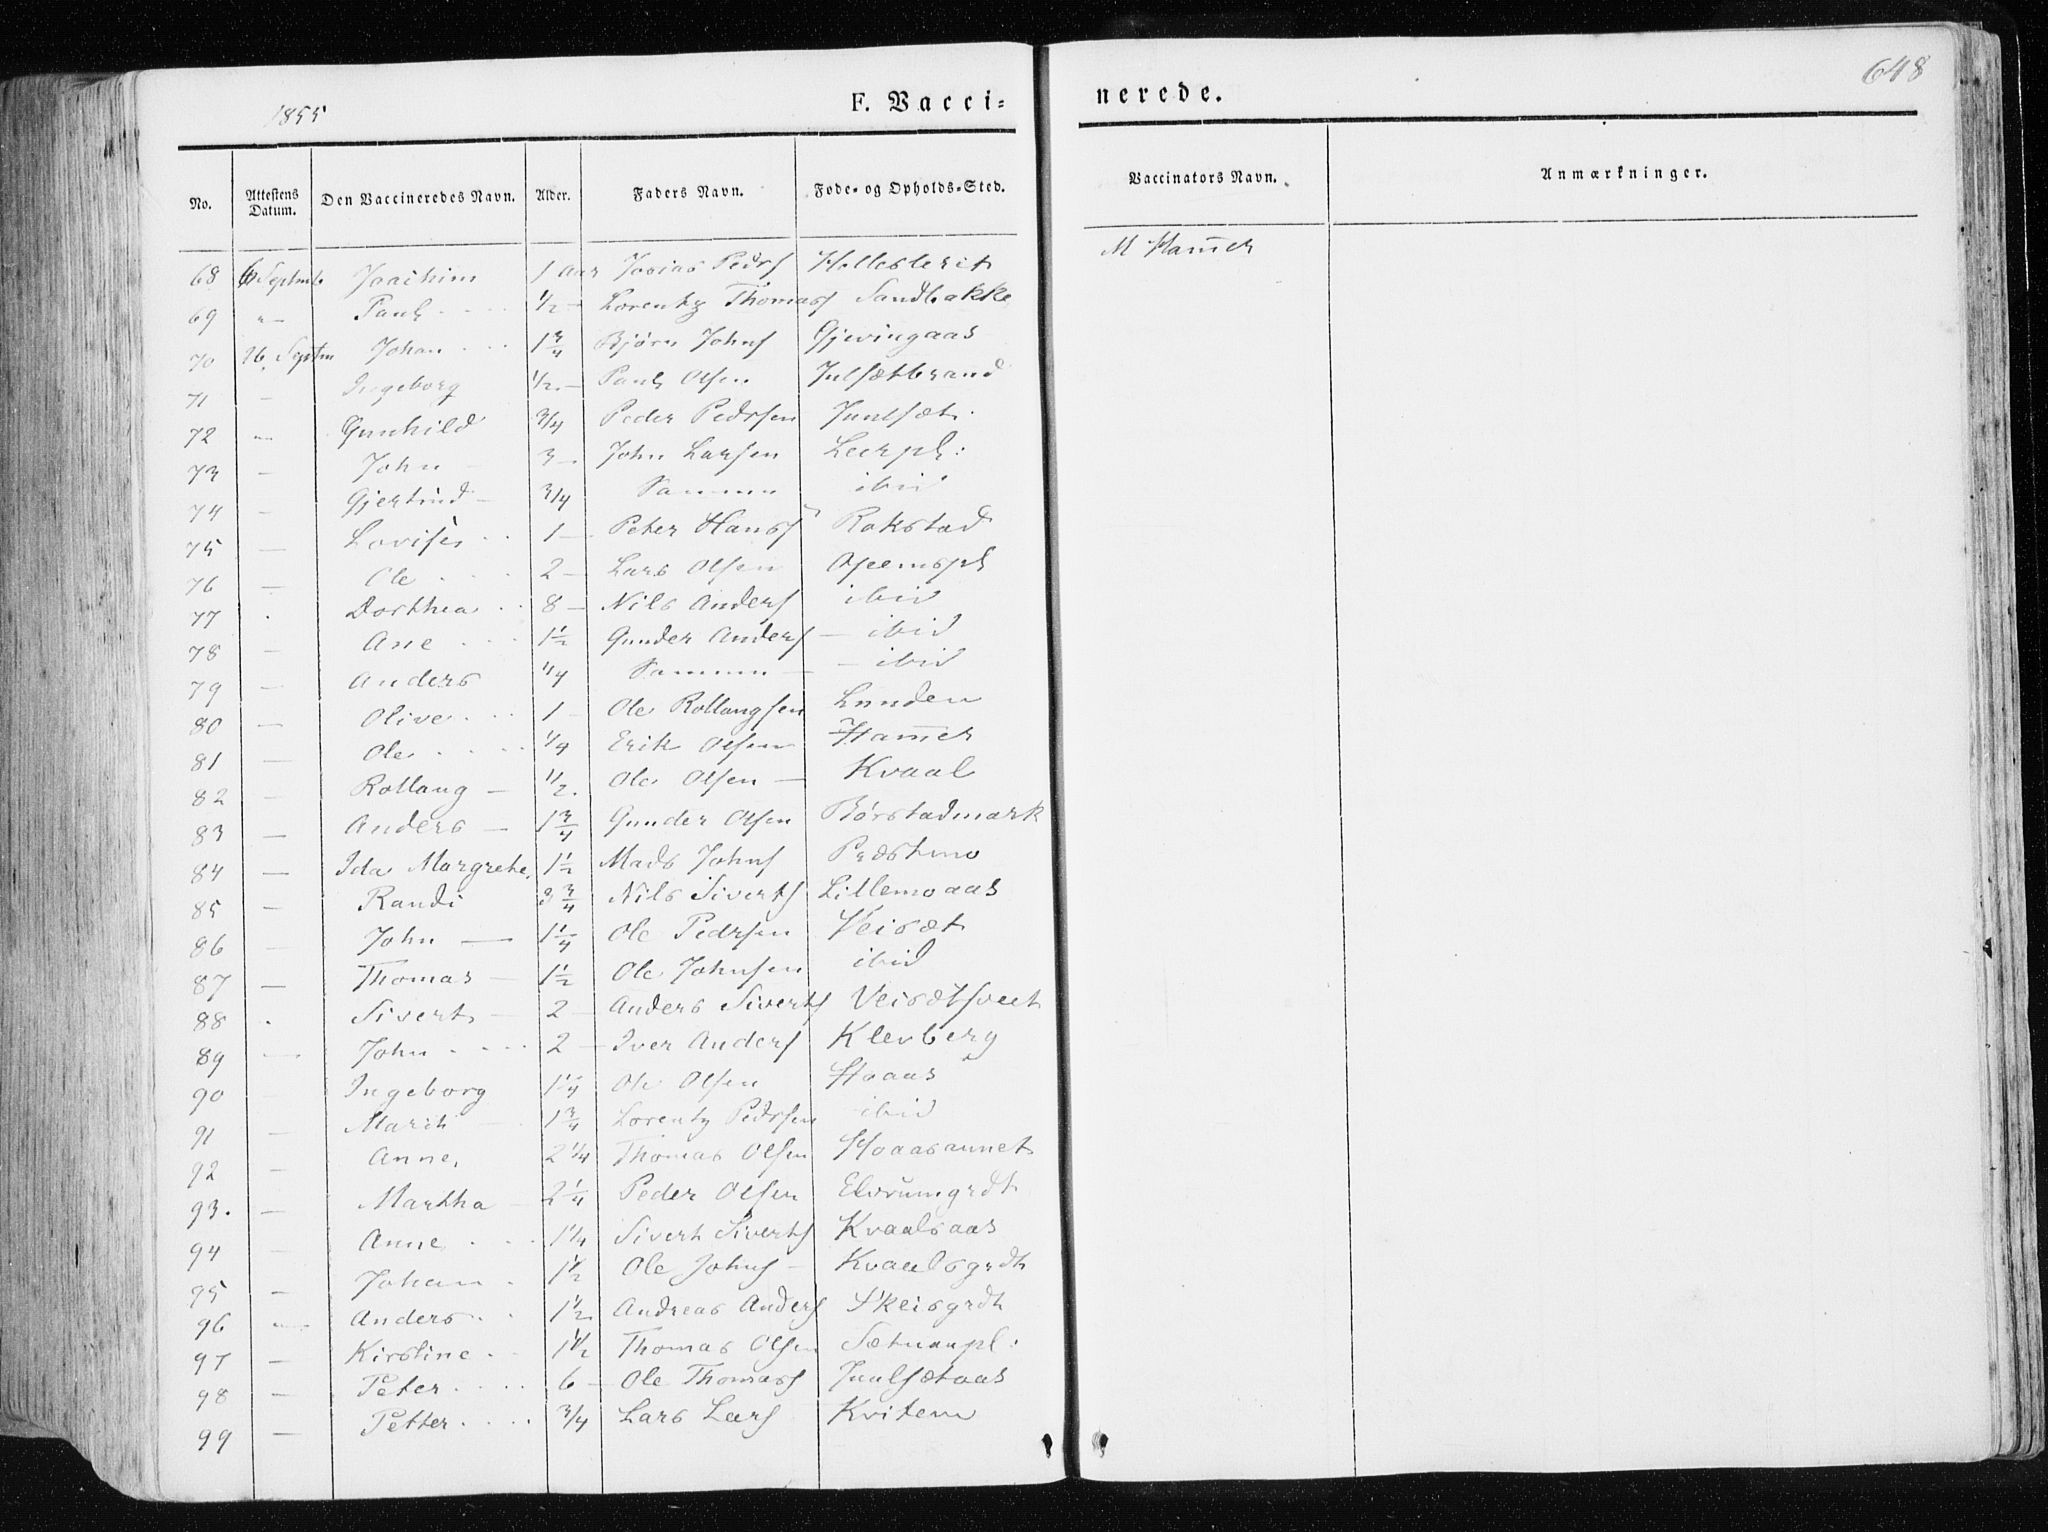 648
1855 F. Vacci= nerede.
No. Attestens Datum. Den Vaccineredes Navn. Alder. Faders Navn. Føde- og Opholds-Sted. Vaccinators Navn. Anmærkninger.
68 6 Septmb Joachim 1 aar Josias Peders M Ham̅er
69 „— Paul ½ — Lorentz Thomass Sandbakke
70 26 Septm Johan 1¾ Bjørn Johns Gjevingaas
71 — Ingeborg ½ — Paul Olsen Julsætbrand
72 „— Gunhild ¾ Peder Pedrsen Juulsæt
73 — John — 3 — John Larsen Leerpl:
74 — Gjertrud — ¾ Sammen ibid
75 — Lovise 1 — Peter Hanss Rokstad
76 — Ole 2 — Lars Olsen
77 . Dorthea 8 — Nils Anders ibid
78 — Ane 1½ Gunder Anders — ibid
79 — Anders ¼ Sammen — — ibid
80 — Olive 1 — Ole Rollaugsen Lunden
81 — Ole ¼ Erik Olsen Ham̅er
82 — Rollaug — ½. Ole Olsen — Kvaal
83 — Anders — 1¾ Gunder Olsen Børstadmark
84 — Ida Margrethe 1½ Mads Johns
85 — Randi 3¾ Nils Siverts Lillemoaas
86 — John — 1¼ Ole Pedrsen Veisæt
87 — Thomas — 1½ Ole Johnsen ibid
88 . Sivert — 2 — Anders Siverts Veisætsveet
89 — John 2 — Iver Anders Klevberg
90 — Ingeborg 1¼ Ole Olsen Hoaas
91 — Marit — 1¾ Lorentz Pedrsen ibid
92 — Anne, 2¼ Thomas Olsen Hoaasaunet
93. — Martha — 2¼ Peder Olsen Elvrumgrdt
94 — Anne 1¼ Sivert Siverts Kvaalsaas
95 — Johan 1½ Ole Johns — Kvaalsgrdt
96 — Anders 1½ Andreas Anders Skeisgrdt
97 — Kirstine 1½ Thomas Olsen Sætnanpl:
98 — Peter 6 — Ole Thomass Juulsætaas
99 — Petter ¾ Lars Lars Kvitem